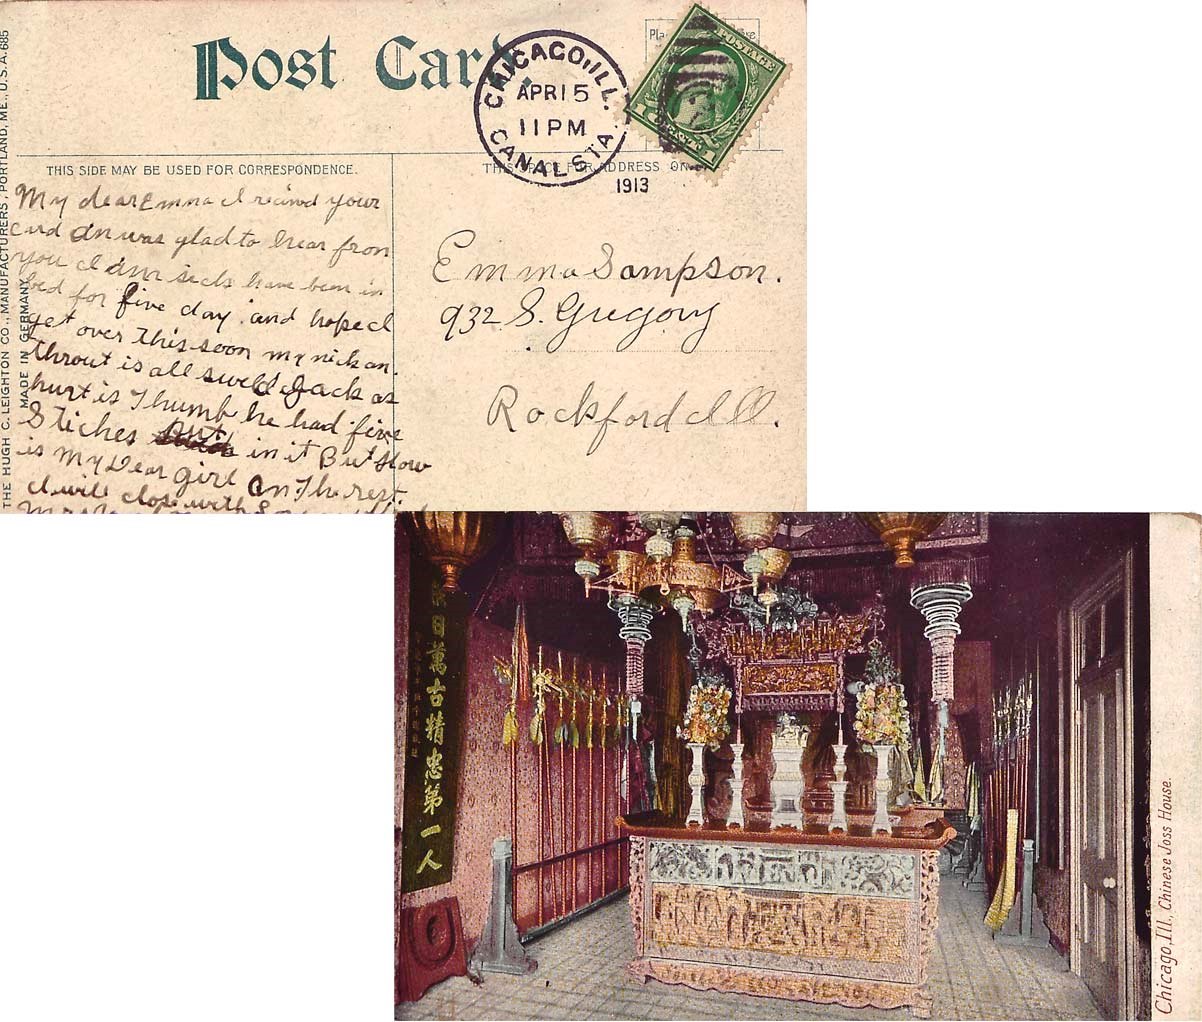 Post Card.
CHICAGO, ILL.
APR 15
11 PM
CANAL STA.
1913
POSTAGE
THIS SIDE MAY BE USED FOR CORRESPONDENCE.
THIS SPACE FOR ADDRESS ON
THE HUGH C. LEIGHTON CO., MANUFACTURERS, PORTLAND, ME., U.S.A. 685
MADE IN GERMANY
My dear Emma I your
card was glad to hear from
you I am sick have been in
bed for five day and hope I
get over this soon my
throut is all sweld Jack as
hurt is Thumb he had five
Stiches in it But How
is My Dear girl an The rest.
I will close with
Emma Sampson.
932 S. Gregory
Rockford Ill.
日萬古精忠第一人
Chicago, Ill., Chinese Joss House.